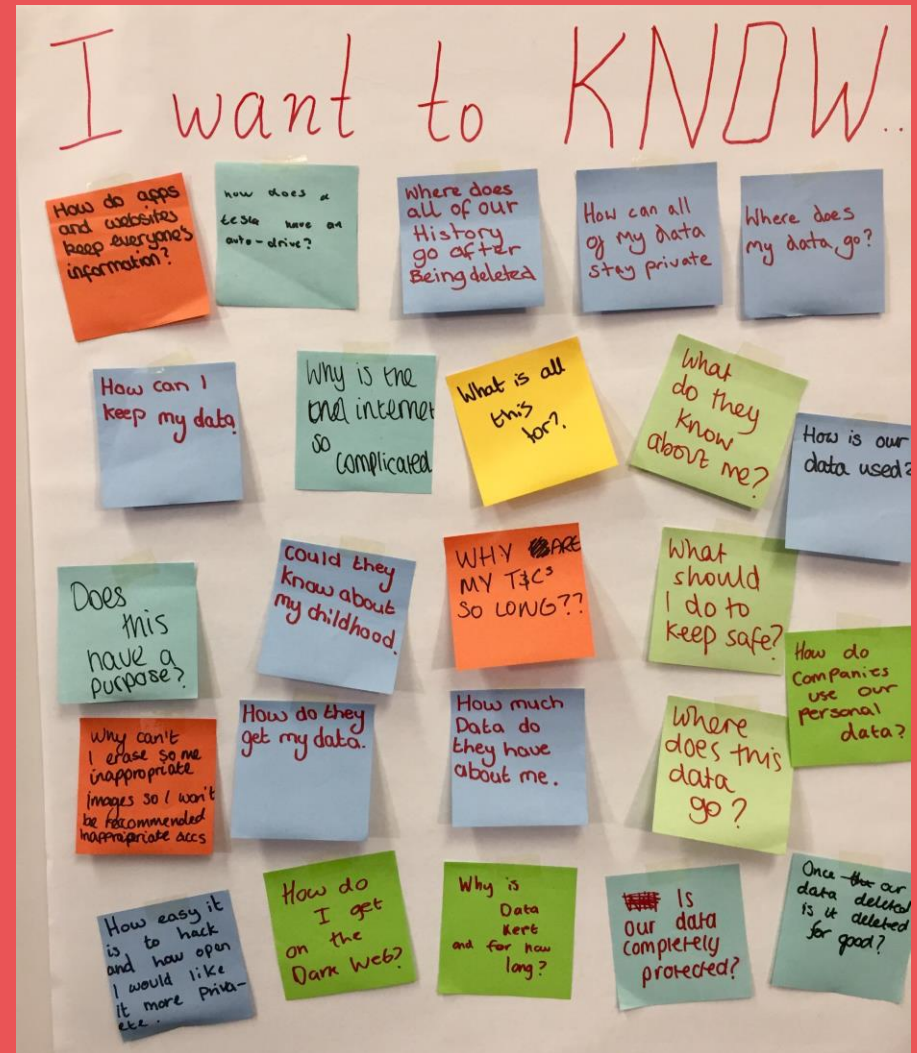 I want to KNOW..
How do apps
and websites
keep everyone's
information?
how does a
tesla have an
auto-drive?
Where does
all of our
History
go after
Being deleted
How can all
of my data
stay private
Where does
my data, go?
How can I
keep my data.
Why is the
internet
so
complicated
What is all
this
for?
What
do they
know
about me?
How is our
data used?
Does
this
have a
purpose?
could they
know about
my childhood.
WHY ARE
MY T&Cs
SO LONG??
What
should
I do to
keep safe?
How do
companies
use our
personal
data?
Why can't
I erase some
inappropriate
images so I won't
be recommended
inappropriate accs
How do they
get my data.
How much
Data do
they have
about me.
Where
does this
data
go?
How easy it
is to hack
and how open
I would like
it more priva-
ete.
How do
I get
on the
Dark Web?
Why is
Data
Kept
and for how
long?
Is
our data
completely
protected?
Once our
data deleted
is it deleted
for good?